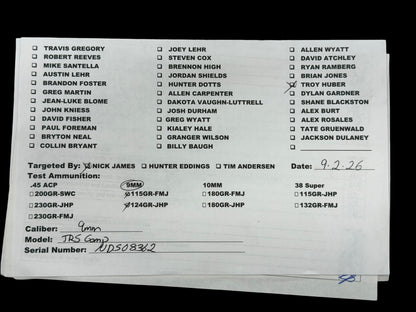 ☐ TRAVIS GREGORY ☐ JOEY LEHR ☐ ALLEN WYATT
☐ ROBERT REEVES ☐ STEVEN COX ☐ DAVID ATCHLEY
☐ MIKE SANTELLA ☐ BRENNON HIGH ☐ RYAN RAMBERG
☐ AUSTIN LEHR ☐ JORDAN SHIELDS ☐ BRIAN JONES
☐ BRANDON FOSTER ☐ HUNTER DOTTS ☒ TROY HUBER
☐ GREG MARTIN ☐ ALLEN CARPENTER ☐ DYLAN GARDNER
☐ JEAN-LUKE BLOME ☐ DAKOTA VAUGHN-LUTTRELL ☐ SHANE BLACKSTON
☐ JOHN KNIESS ☐ JOSH DURHAM ☐ ALEX BURT
☐ DAVID FISHER ☐ GREG WYATT ☐ ALEX ROSALES
☐ PAUL FOREMAN ☐ KIALEY HALE ☐ TATE GRUENWALD
☐ BRYTON NEAL ☐ GRANGER WILSON ☐ JACKSON DULANEY
☐ COLLIN BRYANT ☐ BILLY BAUGH ☐
Targeted By: ☒ NICK JAMES ☐ HUNTER EDDINGS ☐ TIM ANDERSEN Date: 9-2-26
Test Ammunition:
.45 ACP 9MM 10MM 38 Super
☐200GR-SWC ☒115GR-FMJ ☐180GR-FMJ ☐115GR-JHP
☐230GR-JHP ☒124GR-JHP ☐180GR-JHP ☐132GR-FMJ
☐230GR-FMJ
Caliber: 9mm
Model: TRS Comp
Serial Number: NDS08362